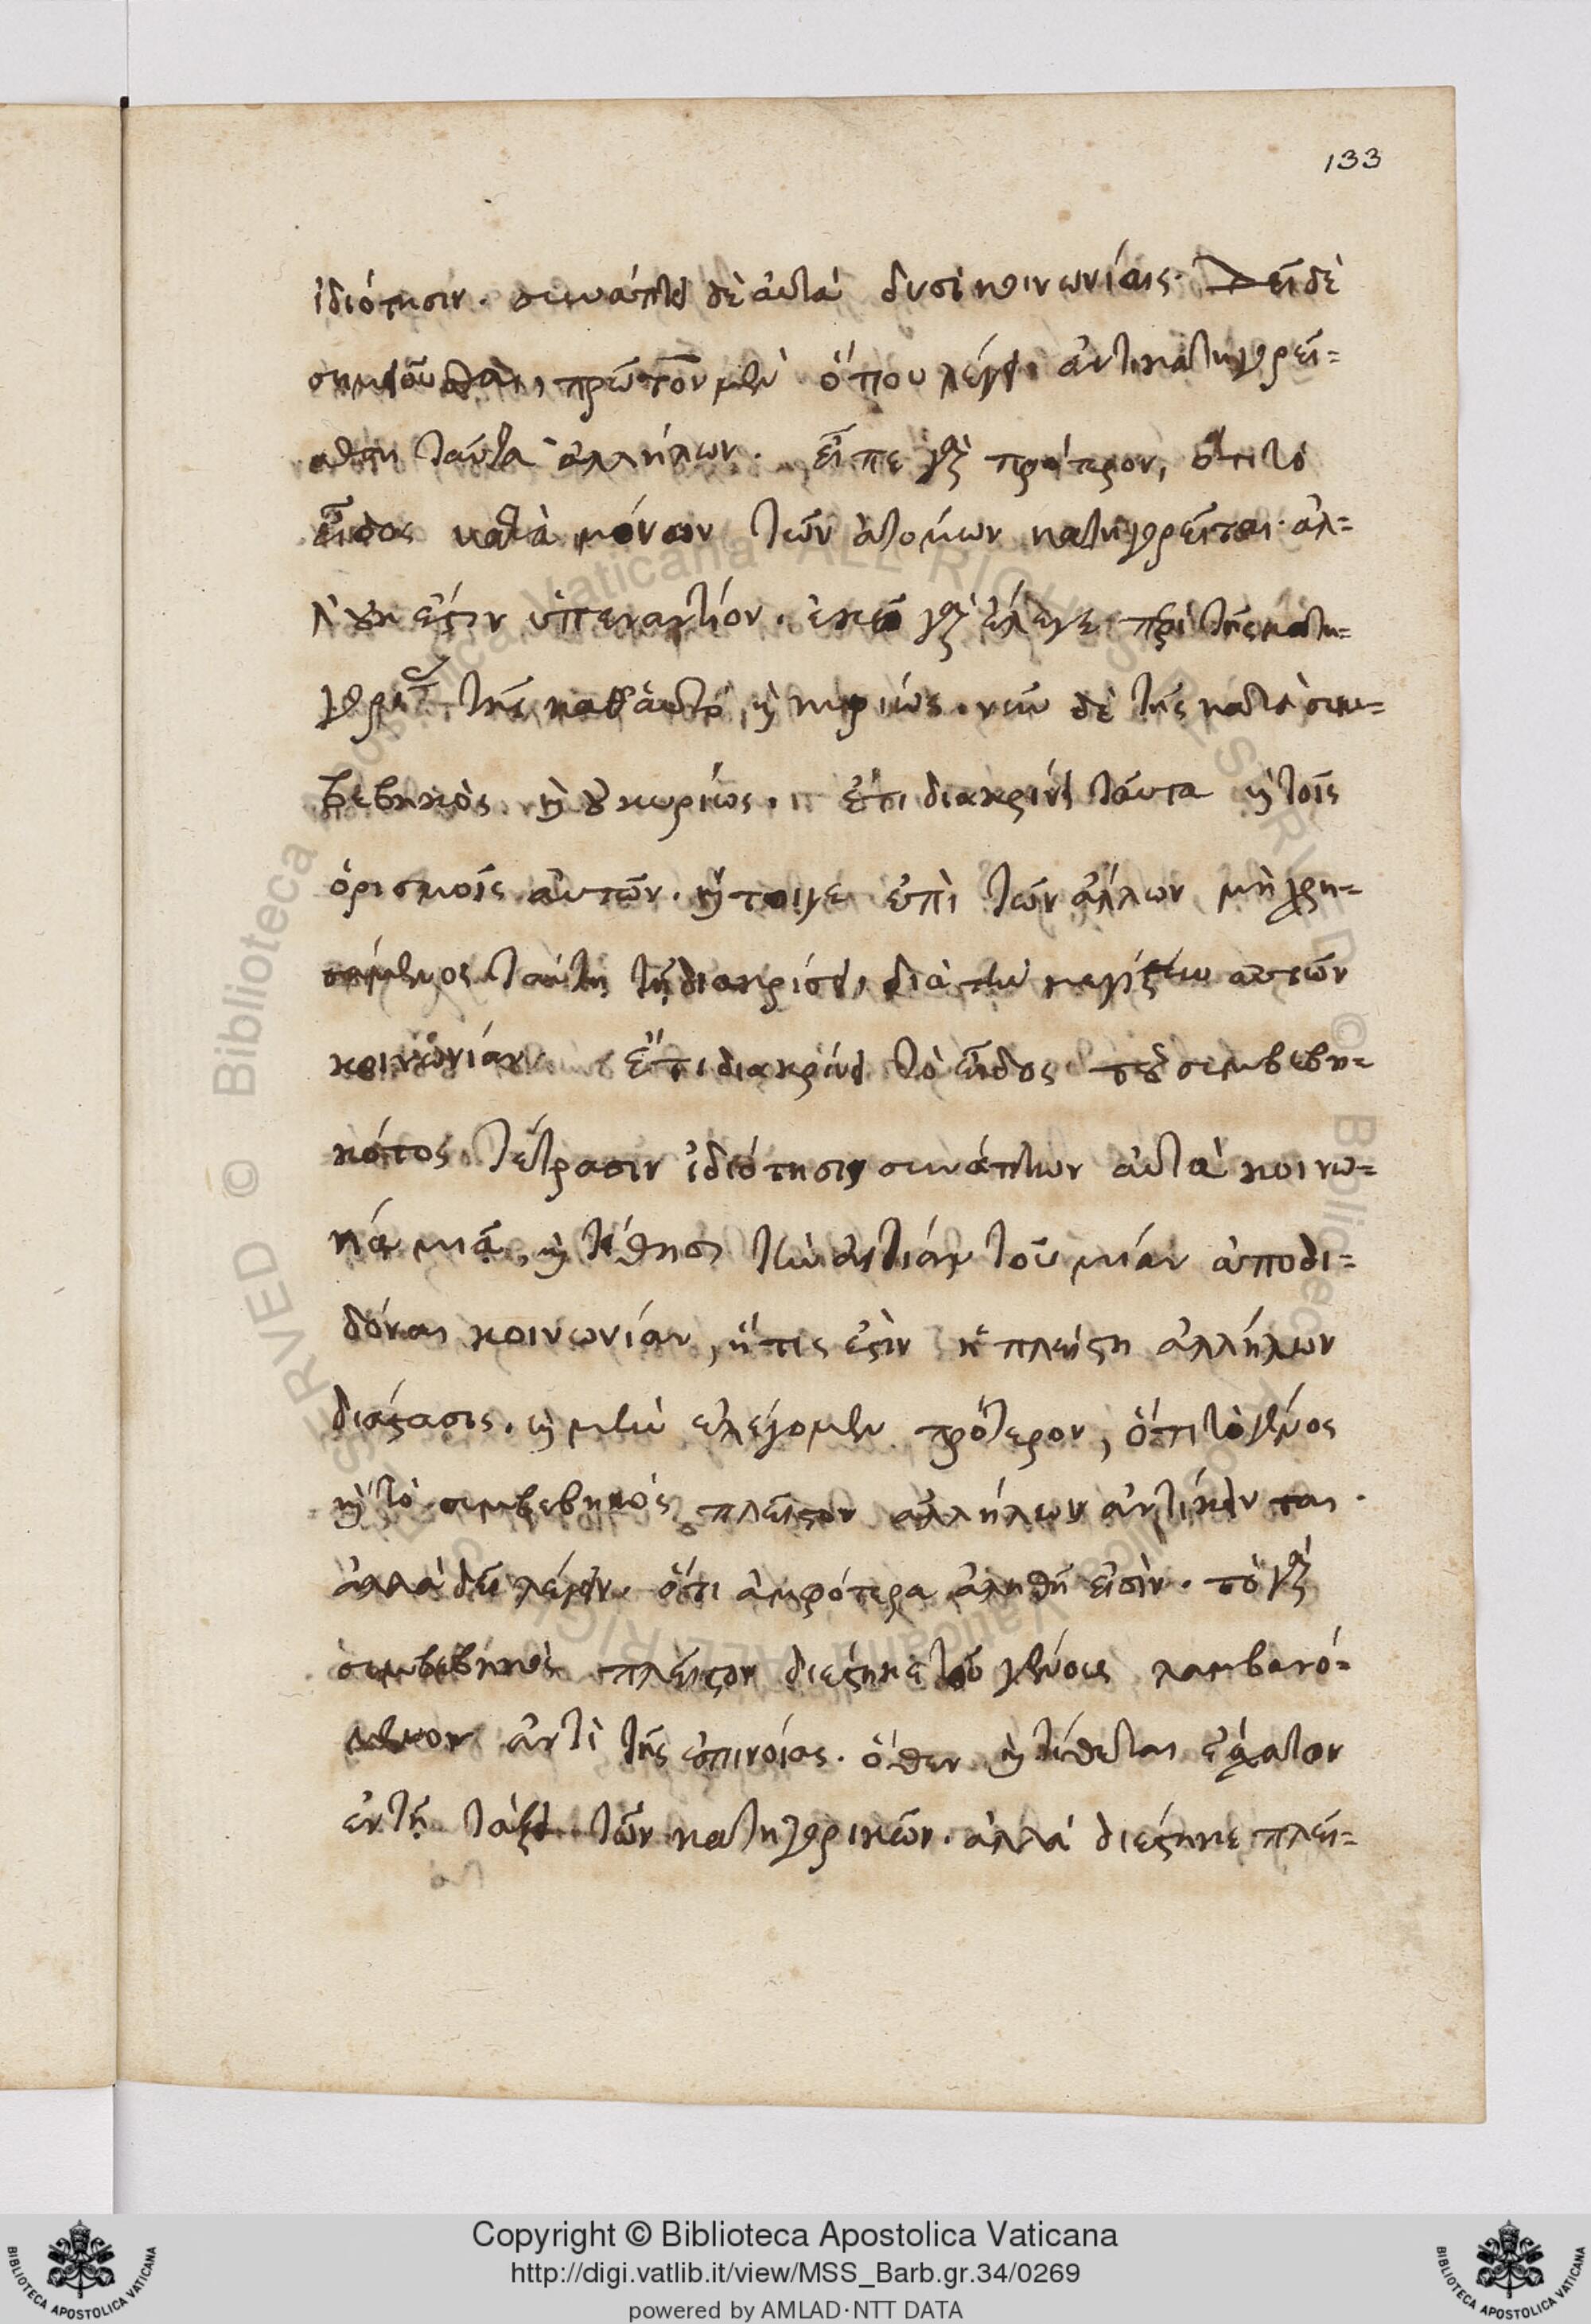 133
ἰδιότησιν. συνάπτει δὲ αὐτὰ δυσὶ κοινωνίαις. Δεῖ δὲ
σημειοῦσθαι, πρῶτον μὲν ὅπου λέγει ἀντικατηγορεῖ=
σθαι ταῦτα ἀλλήλων. εἶπε γὰρ πρότερον, ὅτι τὸ
εἶδος κατὰ μόνων τῶν ἀτόμων κατηγορεῖται. ἀλ=
λ' οὐκ ἐστὶν ὑπεναντίον. ἐκεῖ γὰρ ἔλεγε περὶ τῆς κατη=
γορίας τῆς καθ' αὑτὸ, καὶ κυρίως. νῦν δὲ τῆς κατὰ συμ=
βεβηκὸς καὶ οὐ κυρίως. ἔτι διακρίνει ταῦτα καὶ τοῖς
ὁρισμοῖς αὐτῶν. καίτοιγε ἐπὶ τῶν ἄλλων μὴ χρη=
σάμενος ταύτῃ τῇ διακρίσει, διὰ τὴν μεγίστην αὐτῶν
κοινωνίαν. ἔτι διακρίνει τὸ εἶδος τοῦ συμβεβη=
κότος τέτρασιν ἰδιότησι συνάπτων αὐτὰ κοινω=
νίᾳ μιᾷ, καὶ τίθησι τὴν αἰτίαν τοῦ μίαν ἀποδι=
δόναι κοινωνίαν, ἥτις ἐστὶν ἡ πλείστη ἀλλήλων
διάστασις. καὶ μὴν ἐλέγομεν πρότερον, ὅτι τὸ γένος
καὶ τὸ συμβεβηκὸς πλεῖστον ἀλλήλων ἀντίκεινται.
ἀλλὰ δεῖ λέγειν. ὅτι ἀμφότερα ἀληθῆ εἰσίν. τὸ γὰρ
συμβεβηκὸς πλεῖστον διέστηκε τοῦ γένους λαμβανό=
μενον ἀντὶ τῆς ἐπινοίας. ὅθεν καὶ τίθεται ἔσχατον
ἐν τῇ τάξει τῶν κατηγορικῶν. ἀλλὰ διέστηκε πλεῖ=
Copyright © Biblioteca Apostolica Vaticana
http://digi.vatlib.it/view/MSS_Barb.gr.34/0269
powered by AMLAD·NTT DATA